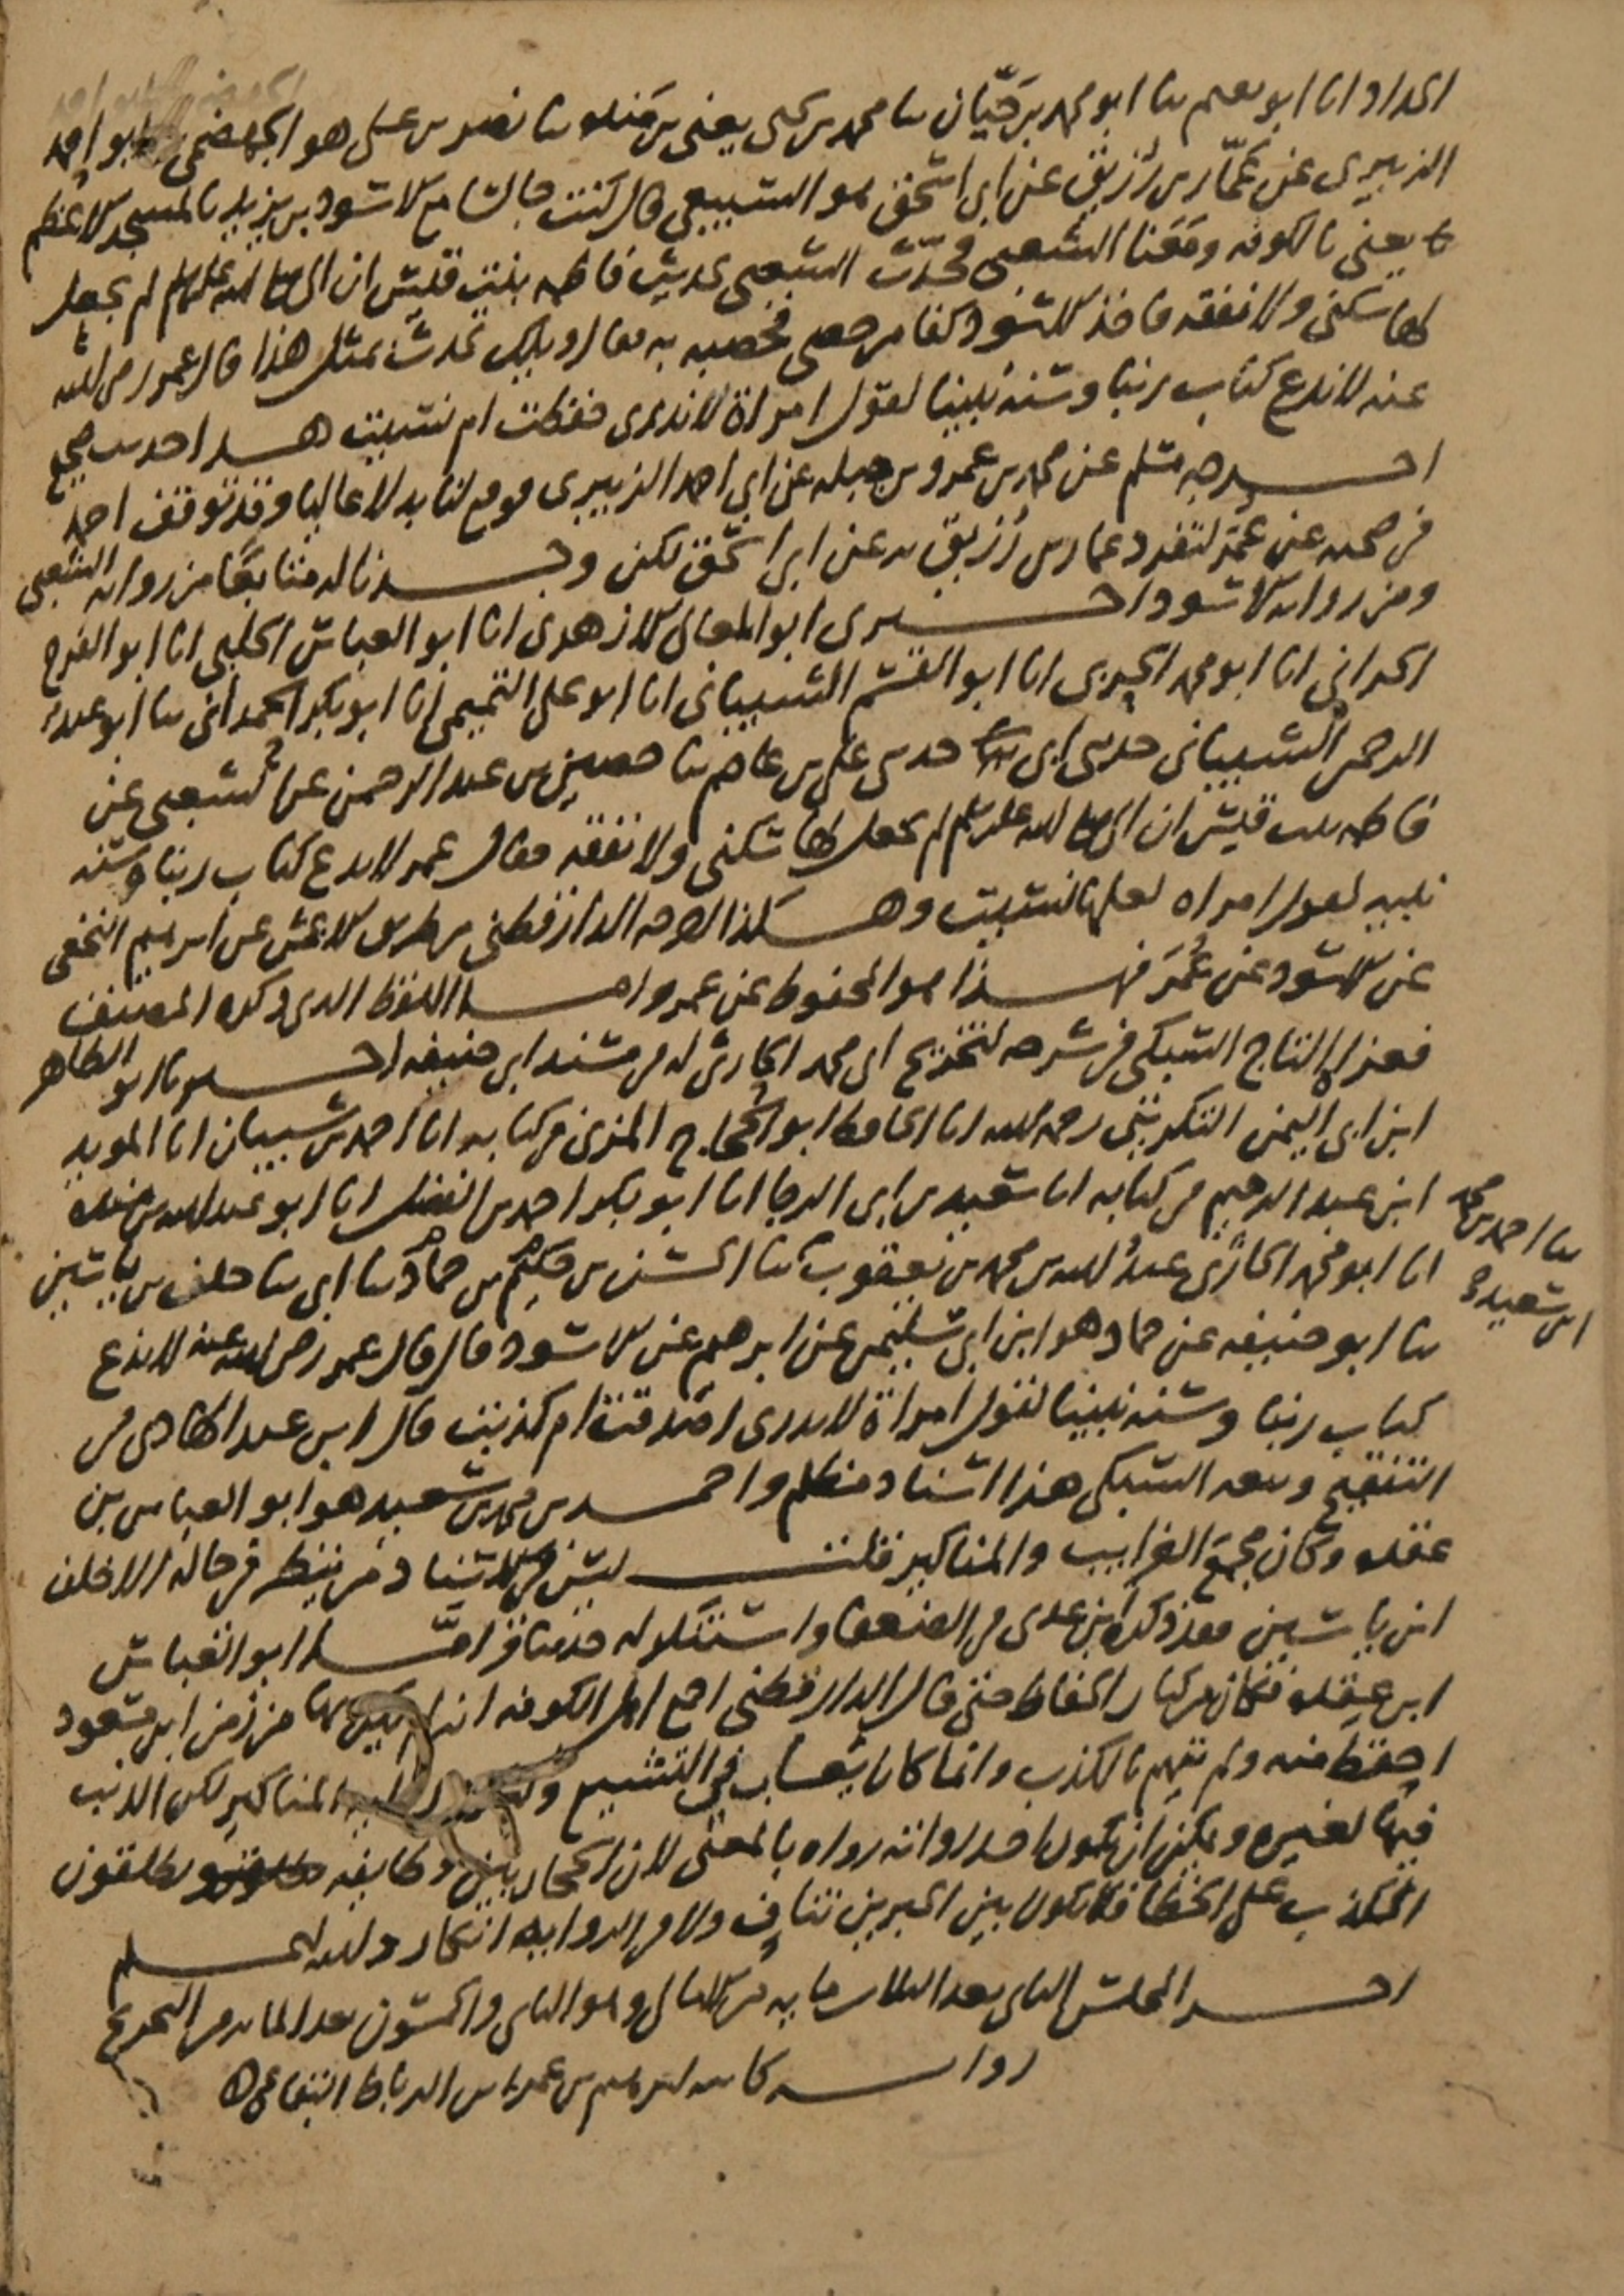 الحداد انا ابو نعيم ثنا ابو محمد بن حيان ثنا محمد بن يحيى يعني بن منده ثنا نصر بن علي هو الجهضمي ثنا ابو احمد
الزبيري عن عمار بن رزيق عن ابي اسحق هو السبيعي قال كنت جالسا مع الاسود بن يزيد بالمسجد الاعظم
يعني بالكوفه ومعنا الشعبي فحدث الشعبي بحديث فاطمه بنت قيس ان النبي صلى الله عليه وسلم لم يجعل
لها سكنى ولا نفقه فاخذ الاسود كفا من حصى فحصبه به فقال ويلك تحدث بمثل هذا قال عمر رضي الله
عنه لا ندع كتاب ربنا وسنه نبينا لقول امراة لا ندري حفظت ام نسيت هذا حديث صحيح
اخرجه مسلم عن محمد بن عمرو بن جبله عن ابي احمد الزبيري فوقع لنا بدلا عاليا وقد توقف احمد
في صحته عن عمر لتفرد عمار بن رزيق به عن ابي اسحق لكن وجدنا له متابعا من رواية الشعبي
ومن رواية الاسود اخبرني ابو المعالي الازهري انا ابو العباس الحلبي انا ابو الفرج
الحراني انا ابو محمد الحربي انا ابو القسم الشيباني انا ابو علي التميمي انا ابو بكر الحمداني ثنا ابو عبد
الرحمن الشيباني حدثني ابي حدثني علي بن عاصم ثنا حصين بن عبد الرحمن عن الشعبي عن
فاطمه بنت قيس ان النبي صلى الله عليه وسلم لم يجعل لها سكنى ولا نفقه فقال عمر لا ندع كتاب ربنا وسنه
نبيه لقول امراه لعلها نسيت وهكذا اخرجه الدارقطني من طريق الاعمش عن ابرهيم النخعي
عن الاسود عن عمر فهذا هو المحفوظ عن عمر واما اللفظ الذي ذكره المصنف
فعزاه التاج السبكي في شرحه لتخريج ابي محمد الحارثي له في مسند ابي حنيفه اخبرنا ابو الطاهر
ابن ابي اليمن التكريتي رحمه الله انا الحافظ ابو الحجاج المزي في كتابه انا احمد بن شيبان انا المويد
ابن عبد الرحيم في كتابه انا سعيد بن ابي الرجا انا ابو بكر احمد بن الفضل انا ابو عبد الله بن منده
انا ابو محمد الحارثي عبد الله بن محمد بن يعقوب ثنا الحسن بن حكيم بن حماد ثنا ابي ثنا خلف بن ياسين
ثنا احمد بن محمد
ابن سعيد
ثنا ابو حنيفه عن حماد هو ابن ابي سليمن عن ابرهيم عن الاسود قال قال عمر رضي الله عنه لا ندع
كتاب ربنا وسنه نبينا لقول امراة لا ندري اصدقت ام كذبت قال ابن عبد الهادي في
التنقيح وتبعه السبكي هذا اسناد مظلم واحمد بن محمد بن سعيد هو ابو العباس بن
عقده وكان مجمع الغرايب والمناكير قلت ليس في الاسناد من ينظر في حاله الا خلف
ابن ياسين فقد ذكره ابن عدي في الضعفا واستنكر له حديثا واما ابو العباس
ابن عقده فكان من كبار الحفاظ حتى قال الدارقطني اجمع اهل الكوفه انه لم يكن بها من زمن ابن مسعود
احفظ منه ولم يتهم بالكذب وانما كان يعاب في التشيع المناكير لكن الذنب
فيها لغيره ويمكن ان يكون احد رواته رواه بالمعنى لان الحجازيين وطايفه يطلقون
الكذب على الخطا فلا يكون بين الخبرين تناف ولا في الرواية انكار ولله الحمد
اخر المجلس الثاني بعد الثلاث مايه من الامالي وهو الثاني والخمسون بعد المايه من التخريج
رواية كاتبه ابرهيم بن عمر بن الرباط البقاعي